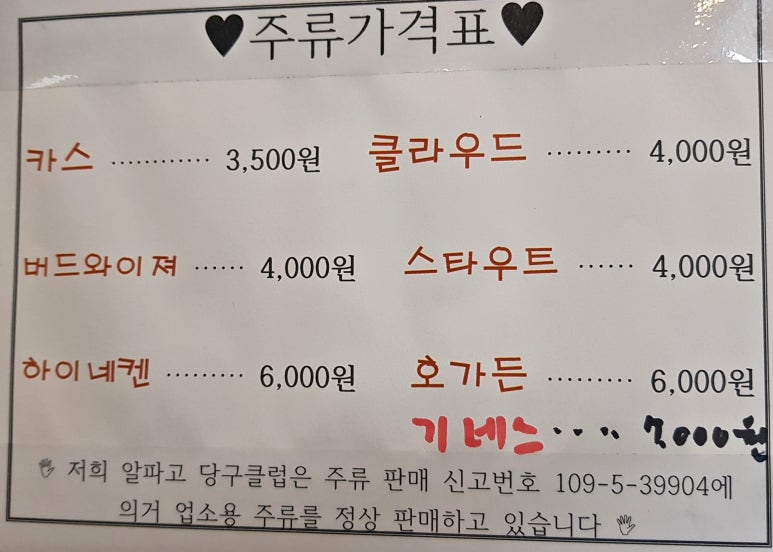 ♥주류가격표♥
카스 ············ 3,500원 클라우드 ········· 4,000원
버드와이져 ······ 4,000원 스타우트 ······ 4,000원
하이네켄 ········· 6,000원 호가든 ········· 6,000원
기네스···· 7.000원
저희 알파고 당구클럽은 주류 판매 신고번호 109-5-39904에
의거 업소용 주류를 정상 판매하고 있습니다